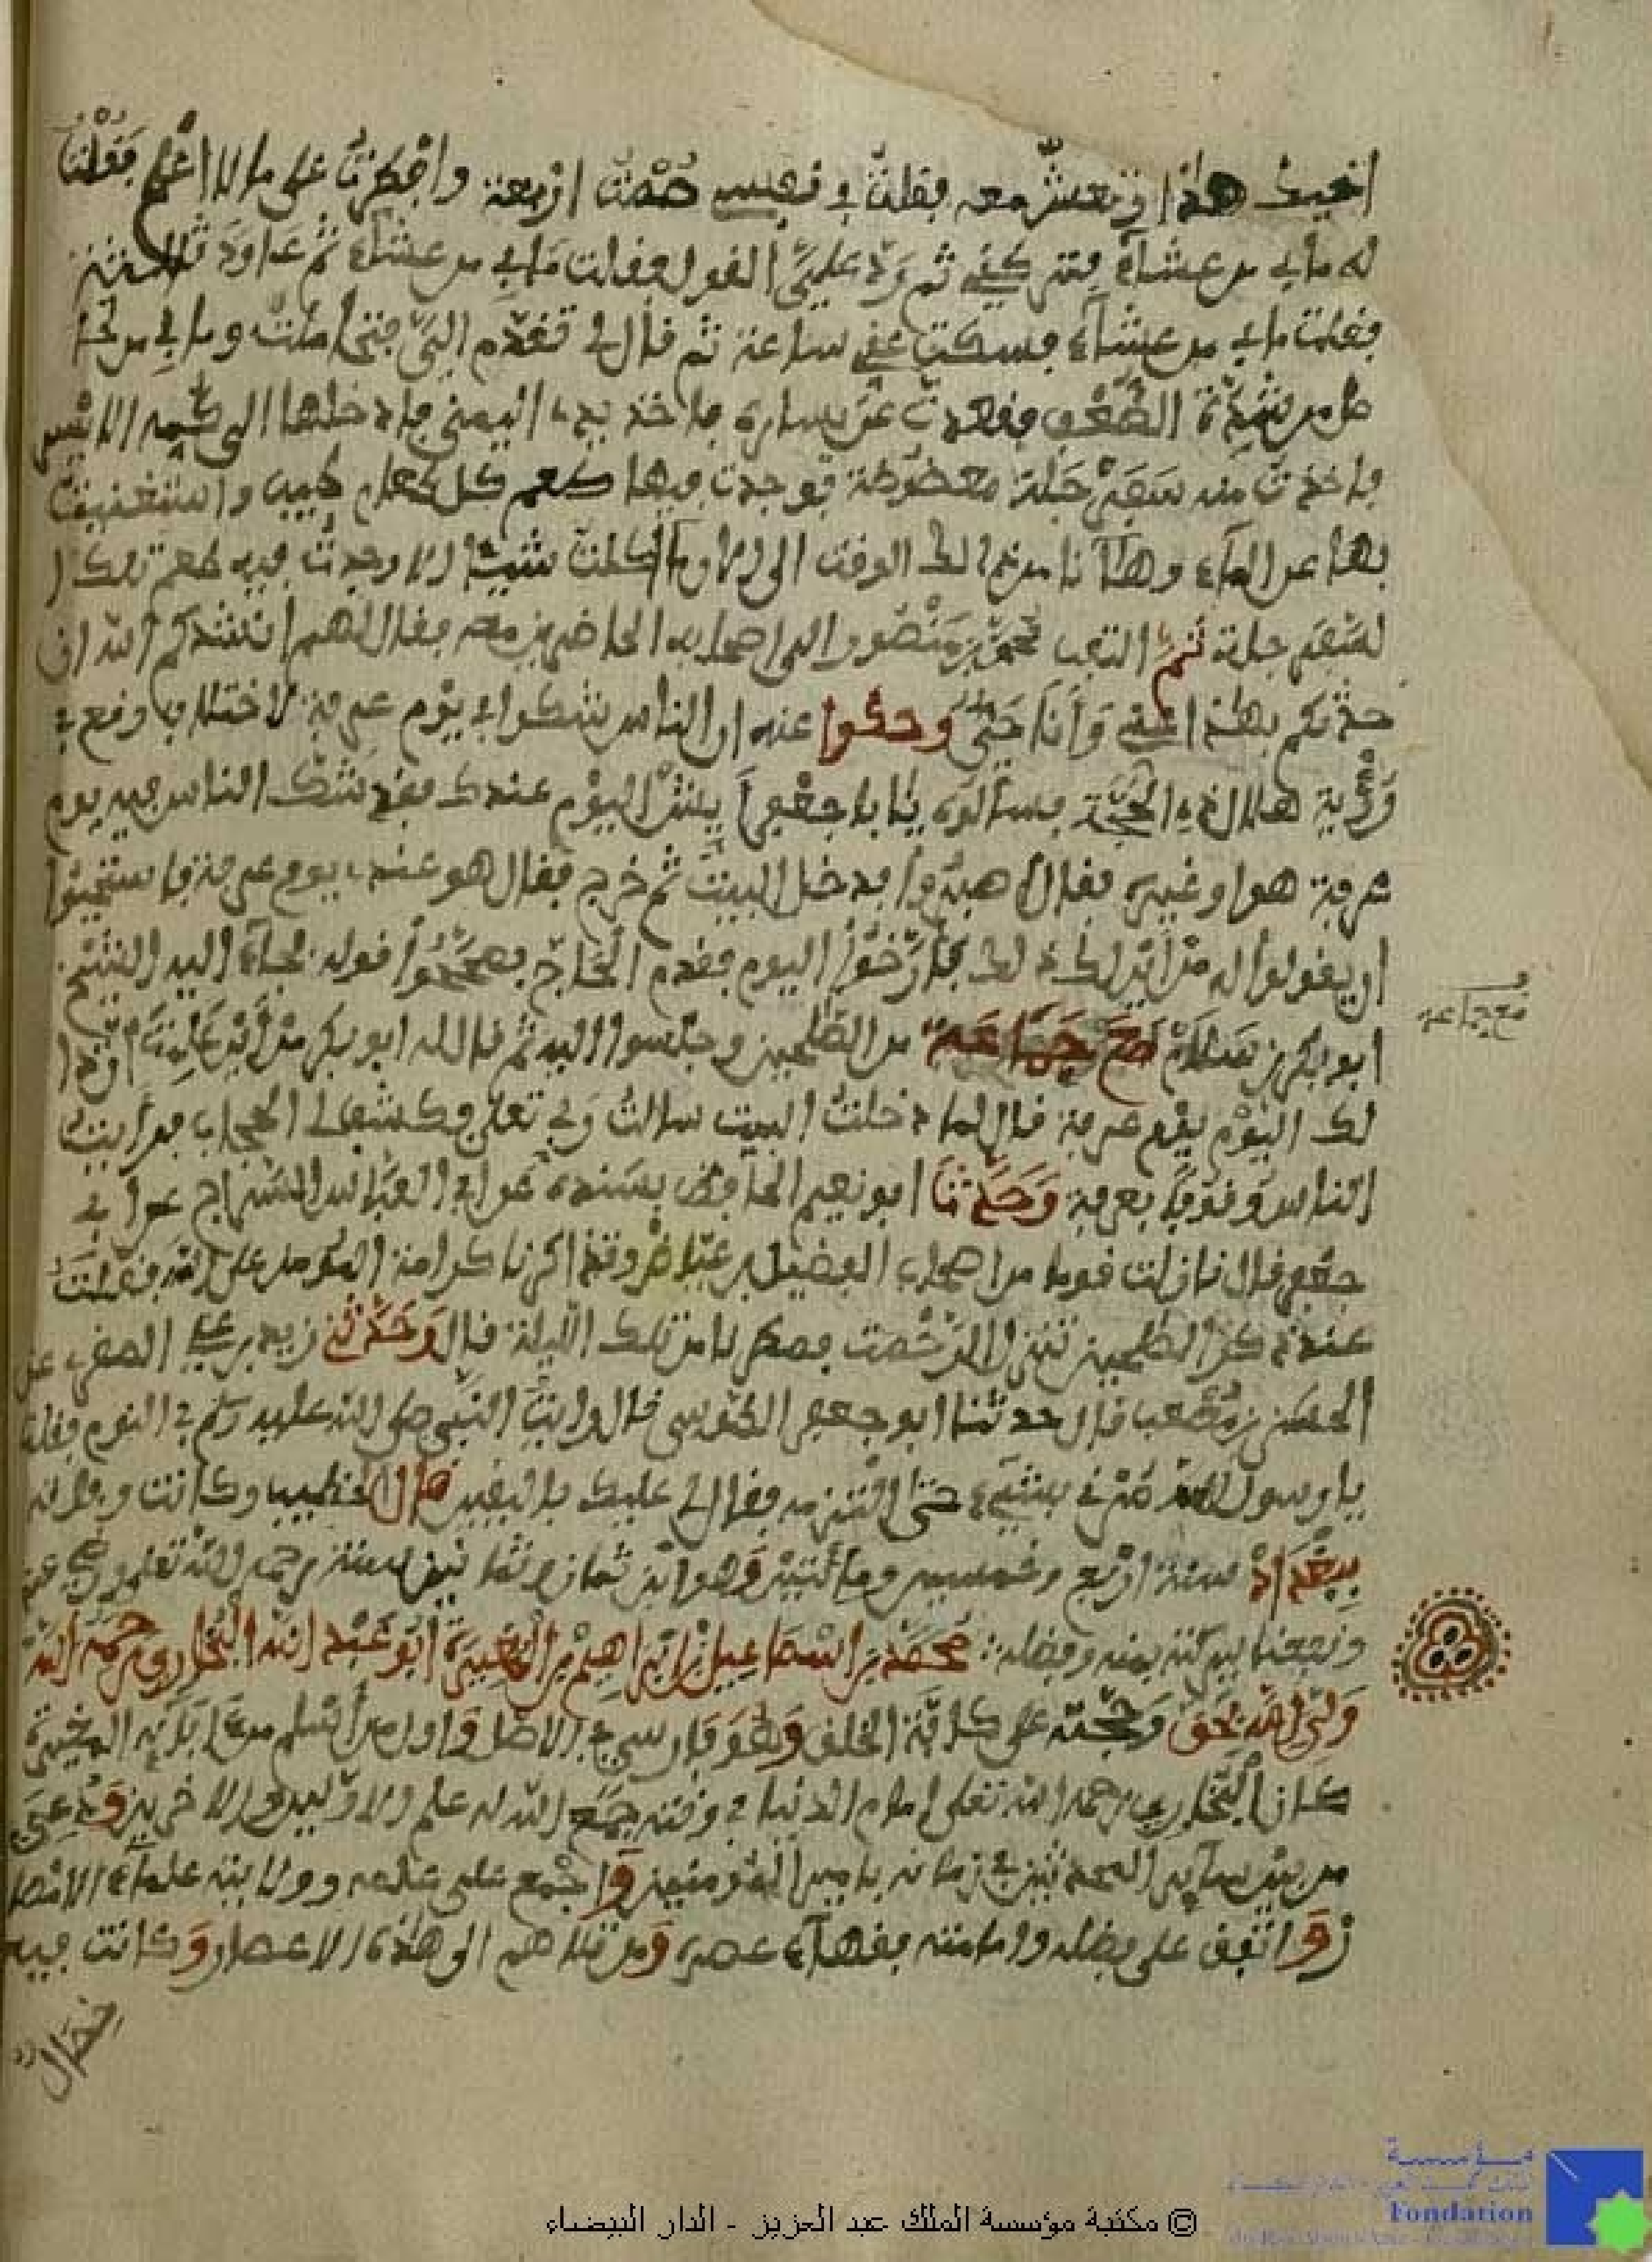 هذا وتعش معه فقلت في نفسي صمت أربعة وأفطرت على ما لا أعلم فقلت
له ما بي من عشاء فتركني ثم رد علي القول فقلت ما بي من عشاء ثم عاود ثالثة
فقلت ما بي من عشاء فسكت عني ساعة ثم قال لي تقدم إلي فتحاملت وما بي من
من شدة الضعف فقعدت عن يساره فأخذ يدي اليمنى فأدخلها إلى كمه الأيسر
فأخذت منه سفرجلة معضوضة فوجدت فيها طعم كل طعام طيب واستغنيت
بها عن الماء وها أنا من ذلك الوقت إلى الآن ما أكلت شيئا إلا وجدت فيه طعم تلك ا
لسفرجلة ثم التفت محمد بن منصور إلى أصحابه الحاضرين معه فقال لهم أنشدكم الله إن
حدثتكم بهذا عني وأنا حي وحكوا عنه أن الناس شكوا في يوم عرفة لاختلاف وقع في
رؤية هلال ذي الحجة فسألوه يا با جعفر اليوم عندك فقد شك الناس فيه يوم
عرفة هو أو غيره فقال اصبروا فدخل البيت ثم خرج فقال هو عندي يوم عرفة فاستحيوا
أن يقولوا له من أين لك ذلك فأرخوا اليوم فقدم الحاج فصححوا قوله فجاء إليه الشيخ
أبو بكر بن سلام مع جماعة من الصالحين وجلسوا إليه ثم قال له أبو بكر من أين علمت أن ذا
لك اليوم يوم عرفة قال لما دخلت البيت سألت ربي تعالى فكشف لي الحجاب فرأيت
الناس وقوفا بعرفة وحدثنا أبو نعيم الحافظ بسنده عن أبي العباس السراج عن أبي
جعفر قال نازلت قوما من أصحاب الفضيل بن عياض وتذاكرنا كرامة المؤمن على الله فقلت
عند ذكر الصالحين تنزل الرحمة فمطرنا من تلك الليلة قال وحدثني زيد بن علي المقري عن
الحسن بن مصعب قال حدثنا أبو جعفر الطوسي قال رأيت النبي صلى الله عليه وسلم في النوم فقلت
يا رسول الله مرني بشيء حتى ألتزمه فقال لي عليك باليقين قال الخطيب وكانت وفاته
ببغداد سنة أربع وخمسين ومائتين وهو ابن ثمان وثمانين سنة رحمه الله تعلى ورضي عنه
ونفعنا ببركته بمنه وفضله: محمد بن اسماعيل بن ابراهيم بن المغيرة أبو عبد الله البخاري رحمه الله
ولي الله بحق وحجته على كافة الخلق وهو فارسي الأصل وأول من أسلم من آبائه المغيرة
كان البخاري رحمه الله تعلى إمام الدنيا في وقته جمع الله له علم الأولين والآخرين ودعي
من بين سائر المحدثين في زمانه بأمير المؤمنين وأجمع على علمه وولايته علماء الأمصا
ر واتفق على فضله وإمامته فقهاء عصره ومن تلاهم إلى هذه الأعصار وكانت فيه
خصال
مع جماعة
© مكتبة مؤسسة الملك عبد العزيز - الدار البيضاء
مؤسسة
Fondation